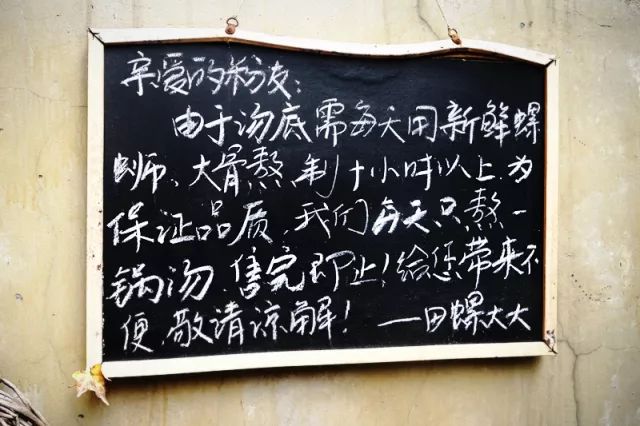 亲爱的粉友：
由于汤底需每天用新鲜螺
蛳、大骨熬制十小时以上.为
保证品质,我们每天只熬一
锅汤.售完即止!给您带来不
便,敬请凉解!——田螺大大